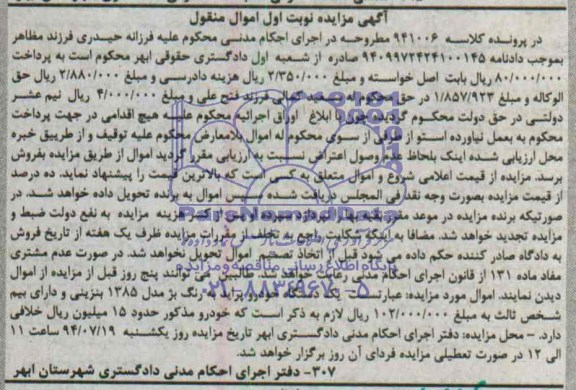 آگهی مزایده نوبت اول اموال منقول
در پرونده کلاسه ۹۴۱۰۰۶ مطروحه در اجرای احکام مدنی محکوم علیه فرزانه حیدری فرزند مظاهر
بموجب دادنامه ۹۴۰۹۹۷۲۴۲۴۱۰۰۱۴۵ صادره از شعبه اول دادگستری حقوقی ابهر محکوم است به پرداخت
۸۰/۰۰۰/۰۰۰ ریال بابت اصل خواسته و مبلغ ۲/۳۵۰/۰۰۰ ریال هزینه دادرسی و مبلغ ۲/۸۸۰/۰۰۰ ریال حق
الوکاله و مبلغ ۱/۸۵۷/۹۲۳ در حق محکوم له سعید کمالی فرزند فتح علی و مبلغ ۴/۰۰۰/۰۰۰ ریال نیم عشر
دولتی در حق دولت محکوم گردیده چون با ابلاغ اوراق اجرائیه محکوم علیه هیچ اقدامی در جهت پرداخت
محکوم به بعمل نیاورده استو از طرفی از سوی محکوم له اموال بلامعارض محکوم علیه توقیف و از طرییق خبره
محل ارزیابی شده اینک بلحاظ عدم وصول اعتراض نسبت به ارزیابی مقرر گردید اموال از طریق مزایده بفروش
برسد. مزایده از قیمت اعلامی شروع و اموال متعلق به کسی است که بالاترین قیمت را پیشنهاد نماید. ده درصد
از قیمت مزایده بصورت وجه نقد فی المجلس دریافت شده سپس اموال به برنده تحویل داده خواهد شد. در
صورتیکه برنده مزایده در موعد مقرر بقیه بها را نپردازد سپرده او پس از کسر هزینه مزایده به نفع دولت ضبط و
مزایده تجدید خواهد شد. مضافا به اینکه شکایت راجع به تخلف از مقررات مزایده ظرف یک هفته از تاریخ فروش
به دادگاه صادر کننده حکم داده می شود قبل از اتخاذ تصمیم اموال تحویل نخواهد شد. در صورت عدم مشتری
مفاد ماده ۱۳۱ از قانون اجرای احکام مدنی رعایت خواهد شد. می توانند پنج روز قبل از مزایده از اموال
دیدن نمایند. اموال مورد مزایده: عبارتست یک دستگاه خودرو پراید به رنگ بژ مدل ۱۳۸۵ بنزینی و دارای بیم
شخص ثالث به مبلغ ۱۰۲/۰۰۰/۰۰۰ ریال لازم به ذکر است که خودرو مذکور حدود ۱۵ میلیون ریال خلافی
دارد. - محل مزایده: دفتر اجرای احکام مدنی دادگستری ابهر تاریخ مزایده روز یکشنبه ۹۴/۰۷/۱۹ ساعت ۱۱
الی ۱۲ در صورت تعطیلی مزایده فردای آن روز برگزار خواهد شد.
۳۰۷- دفتر اجرای احکام مدنی دادگستری شهرستان ابهر
ParsNamadData
پایگاه اطلاع رسانی مناقصه و مزایده
۰۲۱-۸۸۳۴۹۶۷۰-۵